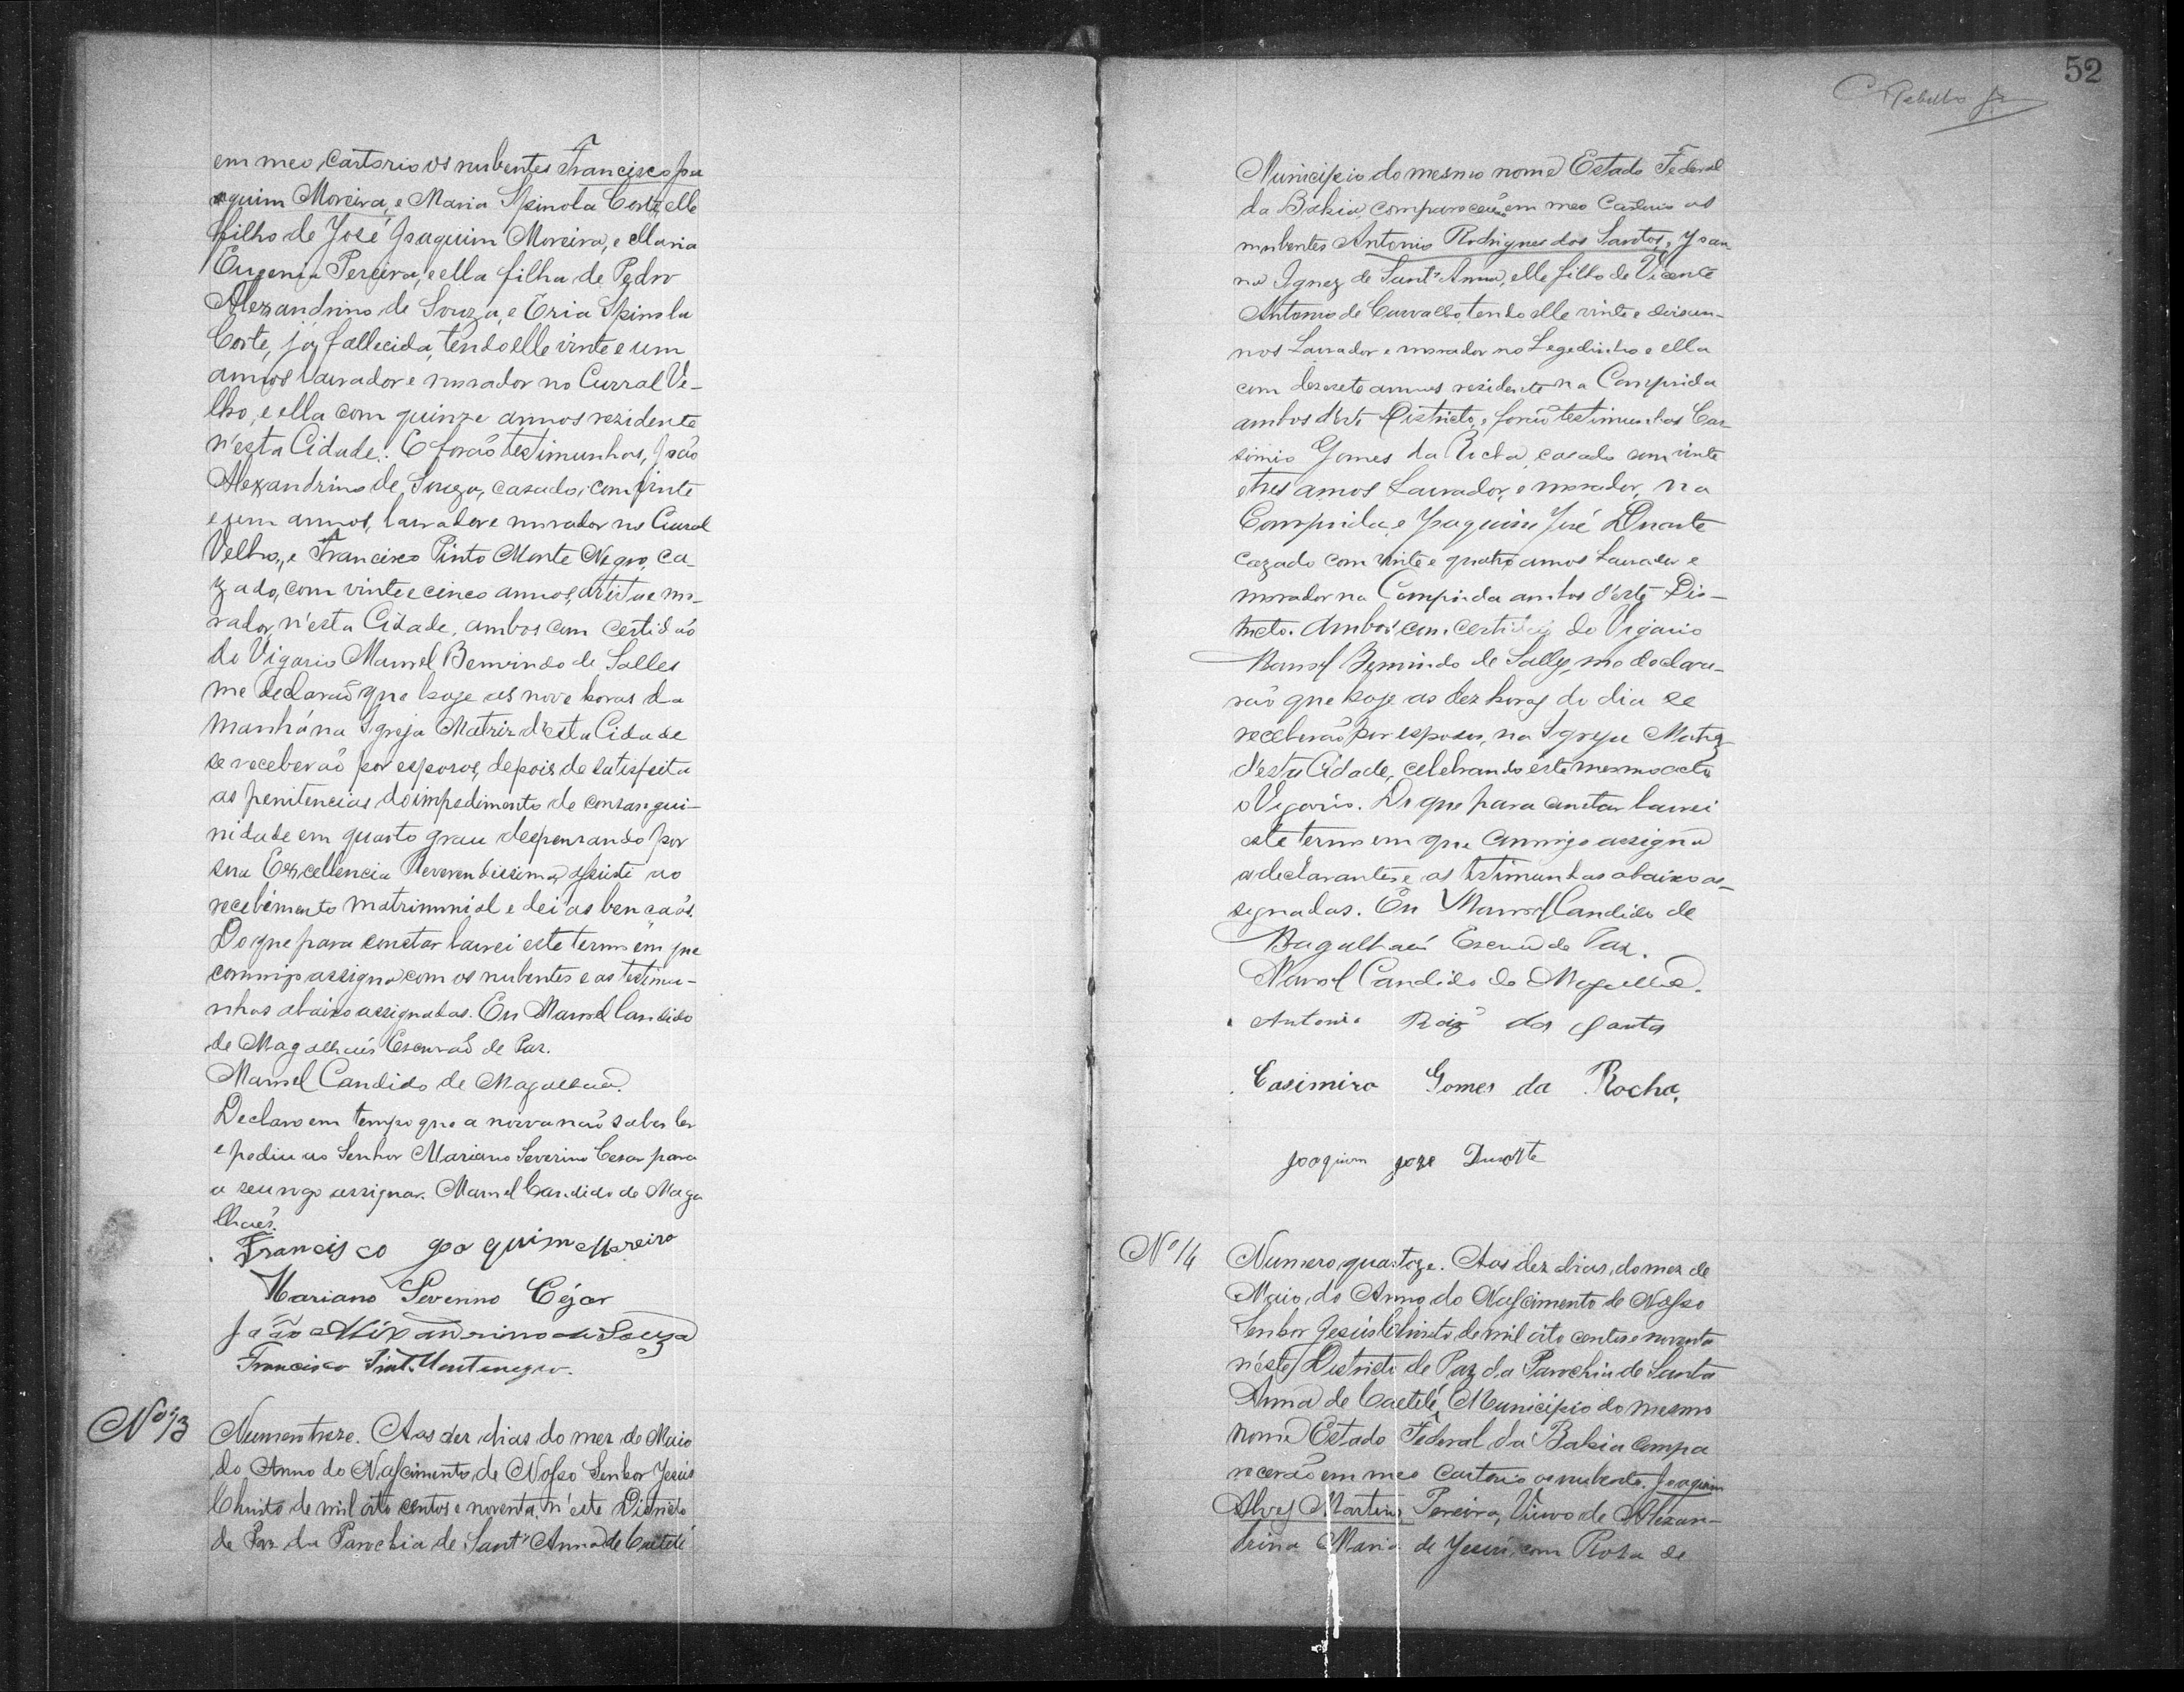 em meo Cartorio os nubentes Francisco Joa
quim Moreira, e Maria Spinola Corte, elle
filho de José Joaquim Moreira, e Maria
Eugenia Pereira, e ella filha de Pedro
Alexandrino de Souza, e Spinola
Corte, já fallecida, tendo elle vinte e um
annos lavrador e morador no Curral Ve-
lho, e ella com quinze annos rezidente
n'esta Cidade. E forão testimunhas, João
Alexandrino de Souza, casado, com vinte
e um annos, lavrador e morador no Curral
Velho, e Francisco Pinto Monte Negro, ca-
zado, com vinte e cinco annos, artista e mo-
rador n'esta Cidade, ambos com certidão
do Vigario Manoel Bemvindo de Salles
me declarão que hoje as nove horas da
manhá na Igreja Matriz d'esta Cidade
se receberão por esposos, depois de satisfeita
as penitencias do impedimento de consangui-
nidade em quarto grau despensando por
sua Excellencia Reverendissima, assisti ao
recebimento matrimonial e dei as bençaõs.
Do que para constar lavrei este termo em que
commigo assigna com os nubentes e as testimu-
nhas abaixo assignadas. Eu Manoel Candido
de Magalhaẽs Escrivaõ de Paz.
Manoel Candido de Magalhaẽs.
Declaro em tempo que a noiva naõ saber ler
e pediu ao Senhor Mariano Severino Cesar para
a seu rogo assignar. Manoel Candido de Maga
lhaẽs.
Francisco Joaquim Moreira
Mariano Severino Cézar
João Alixandrino de Souza
Francisco Pint. Montenegro.
Nº 13
Numero treze. Aos dez dias do mez de Maio
do Anno do Nascimento de Nosso Senhor Jesús
Christo de mil oito centos e noventa, n'este Districto
de Paz da Parochia de Sant'Anna de Caeteté
52
Rebello Jr
Municipio do mesmo nome Estado Federal
da Bahia, comparecerão em meo Cartorio os
nubentes Antonio Rodrigues dos Santos, e Joan
na Ignez de Sant'Anna, elle filho de Vicente
Antonio de Carvalho, tendo elle vinte e dois an-
nos Lavrador e morador no Lagedinho e ella
com desesete annos residente na Comprida
ambos d'este Districto, e forão testimunhas Ca-
simiro Gomes da Rocha, casado com vinte
e tres annos Lavrador, e morador, na
Comprida, e Joaquim José Duarte
cazado com vinte e quatro annos Lavrador e
morador na Comprida ambos d'este Dis-
tricto. Ambos com certidão do Vigario
Manoel Bemvindo de Salles, me declara-
rão que hoje as dez horas do dia se
receberão por esposos, na Igreja Matriz
d'esta Cidade, celebrando este mesmo acto
o Vigario. Do que para constar lavrei
este termo em que commigo assigna
o declarante e as testimunhas abaixo as-
signadas. Eu Manoel Candido de
Magalhaẽs Escrivaõ de Paz.
Manoel Candido de Magalhaẽs.
Antonio Roiz dos Santos
Casimiro Gomes da Rocha.
Joaquim Joze Duarte
Nº 14
Numero quatorze. Aos dez dias, do mez de
Maio, do Anno do Nascimento de Nosso
Senhor Jesús Christo de mil oito centos e noventa
n'este Districto de Paz da Parochia de Santa
Anna de Caeteté, Municipio do mesmo
nome Estado Federal da Bahia compa
recerão em meo Cartorio os nubentes. Joaquim
Alves Martins Pereira, Viuvo de Alexan-
drina Maria de Jesús, com Roza de